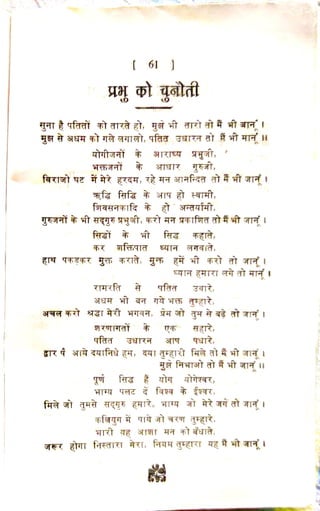 [ 61 ]
प्रभु को चुनौती
सुना है पतितों को तारते हो, मुझे भी तारो तो मैं भी जानूं ।
मुझ से अधम को गले लगालो, पतित उधारन तो मैं भी मानूं ॥
योगीजनों के आराध्य प्रभुजी,
भक्तजनों के आधार गुरुजी,
विराजो घट में मेरे हरदम, रहे मन आनन्दित तो मैं भी जानूं ।
ऋद्धि सिद्धि के आप हो स्वामी,
शिवसनकादि के हो अन्तर्यामी,
गुरुजनों के भी सद्गुरु प्रभुजी, करो मन प्रकाशित तो मैं भी जानूं ।
सिद्धों के भी सिद्ध कहाते,
कर शक्तिपात ध्यान लगवाते,
हाथ पकड़कर मुक्त कराते, मुक्त हमें भी करो तो जानूं ।
ध्यान हमारा लगे तो मानूं ।
रामरति से पतित उबारे,
अधम भी बन गये भक्त तुम्हारे,
अचल करो श्रद्धा मेरी भगवन, प्रेम जो तुम से बढ़े तो जानूं ।
शरणागतों के एक सहारे,
पतित उधारन आप पधारे,
द्वार पे आये दयानिधे हम, दया तुम्हारी मिले तो मैं भी जानूं ।
मुझे निभाओ तो मैं भी जानूं ॥
पूर्ण सिद्ध है योग योगेश्वर,
भाग्य पलट दें विश्व के ईश्वर,
मिले जो तुमसे सद्गुरु हमारे, भाग्य जो मेरे जगे तो जानूं ।
कलियुग में पाये जो चरण तुम्हारे,
भारी यह आशा मन को बँधाते,
जरूर होगा निस्तारा मेरा, नियम तुम्हारा यह मैं भी जानूं ।